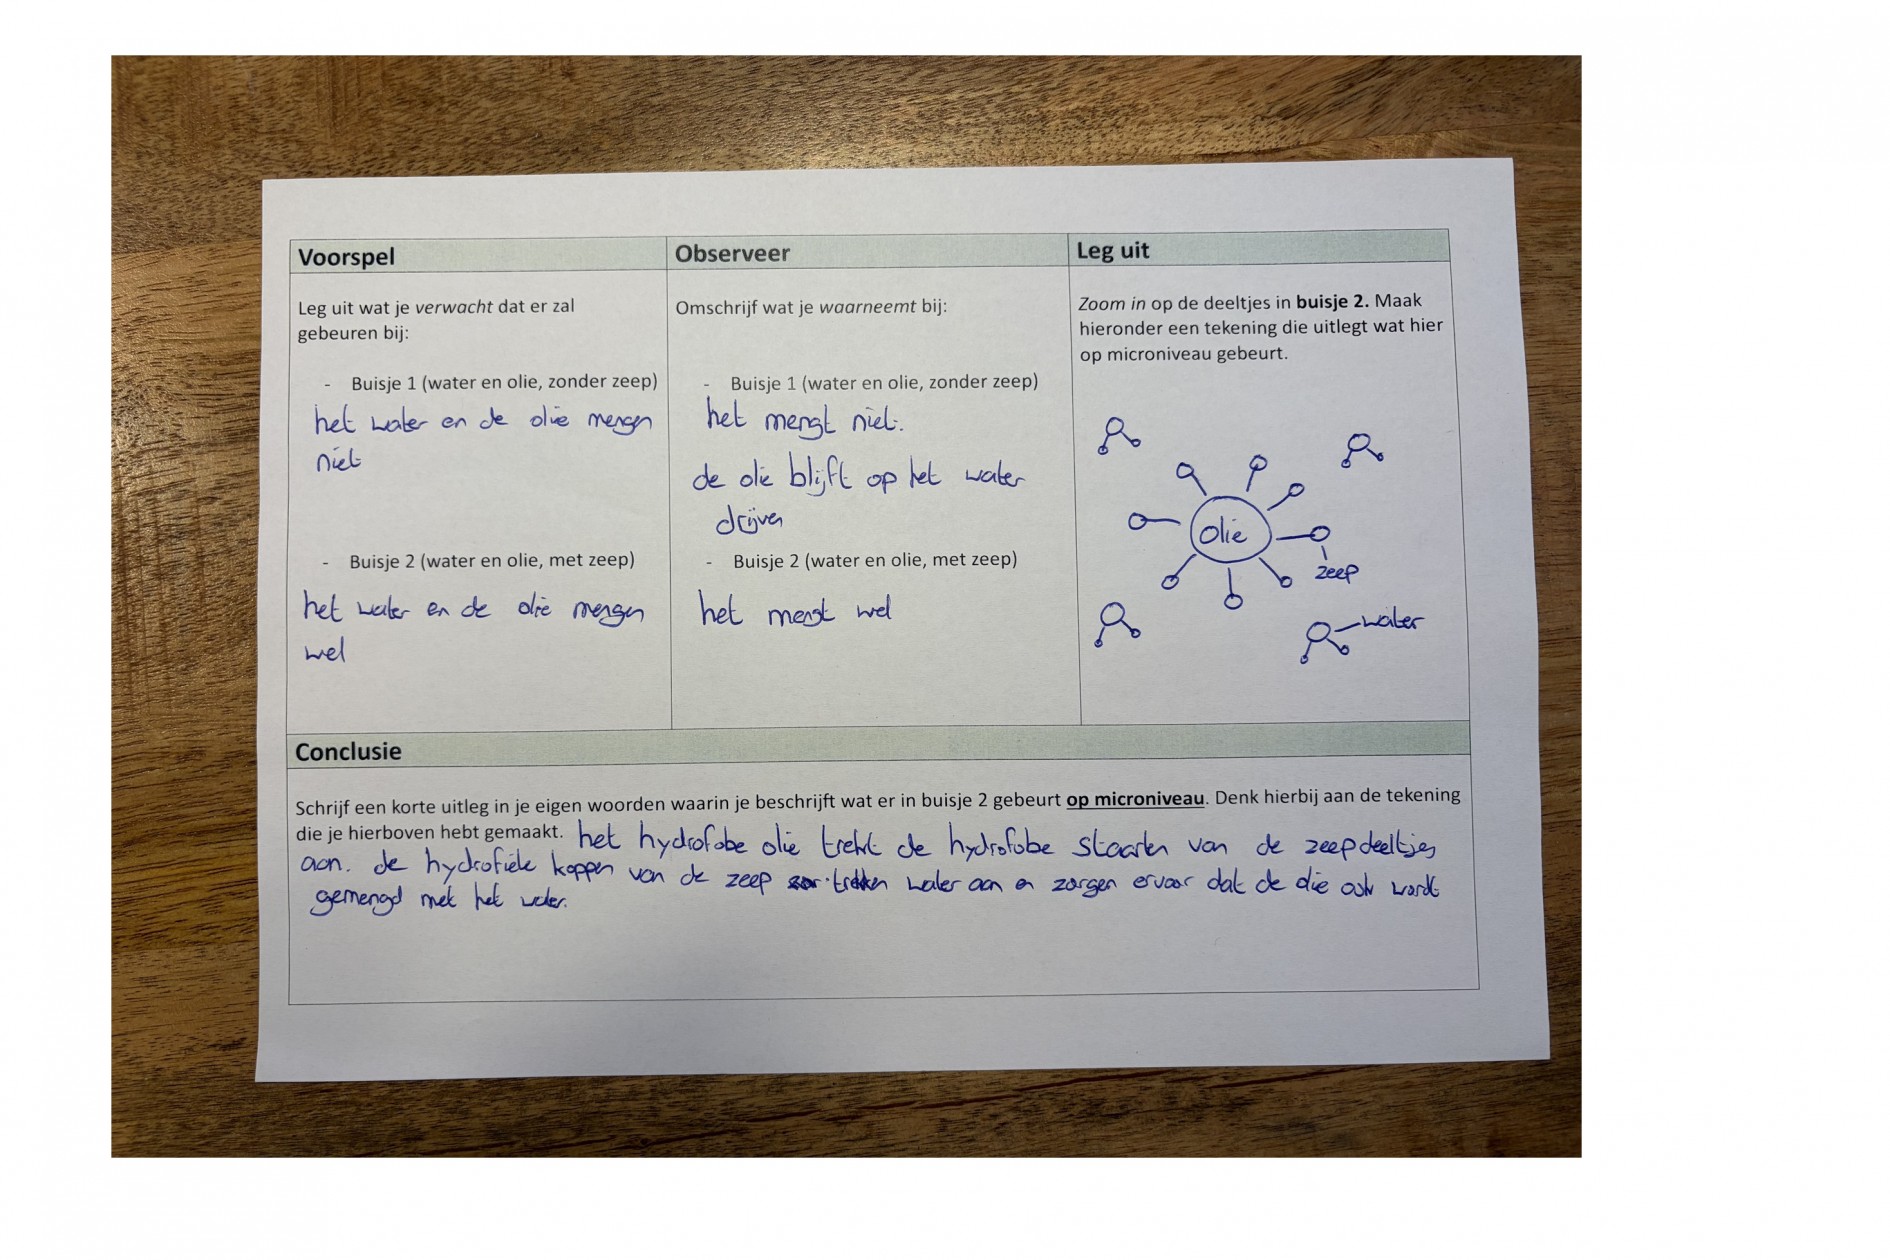 Voorspel
Leg uit wat je verwacht dat er zal
gebeuren bij:
- Buisje 1 (water en olie, zonder zeep)
het water en de olie mengen
niet
- Buisje 2 (water en olie, met zeep)
het water en de olie mengen
wel
Observeer
Omschrijf wat je waarneemt bij:
- Buisje 1 (water en olie, zonder zeep)
het mengt niet.
de olie blijft op het water
drijven
- Buisje 2 (water en olie, met zeep)
het mengt wel
Leg uit
Zoom in op de deeltjes in buisje 2. Maak
hieronder een tekening die uitlegt wat hier
op microniveau gebeurt.
olie
zeep
water
Conclusie
Schrijf een korte uitleg in je eigen woorden waarin je beschrijft wat er in buisje 2 gebeurt op microniveau. Denk hierbij aan de tekening
die je hierboven hebt gemaakt. het hydrofobe olie trekt de hydrofobe staarten van de zeepdeeltjes
aan. de hydrofiele koppen van de zeep trekken water aan en zorgen ervoor dat de olie ook wordt
gemengd met het water.